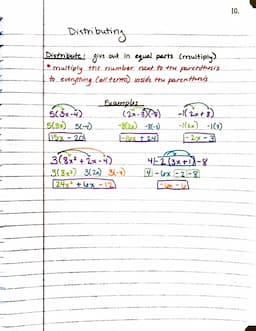 10.
Distributing
Distribute: give out in equal parts (multiply)
* multiply the number next to the parenthesis
to everything (all terms) inside the parenthesis
Examples
5(3x-4) (2x-3)(-8) -1(2x+3)
5(3x) 5(-4) -8(2x) -8(-3) -1(2x) -1(3)
15x - 20 -16x + 24 -2x - 3
3(8x² + 2x - 4) 4-2(3x+1)-8
3(8x²) 3(2x) 3(-4) 4 -6x -2 -8
24x² + 6x - 12 -6x - 6